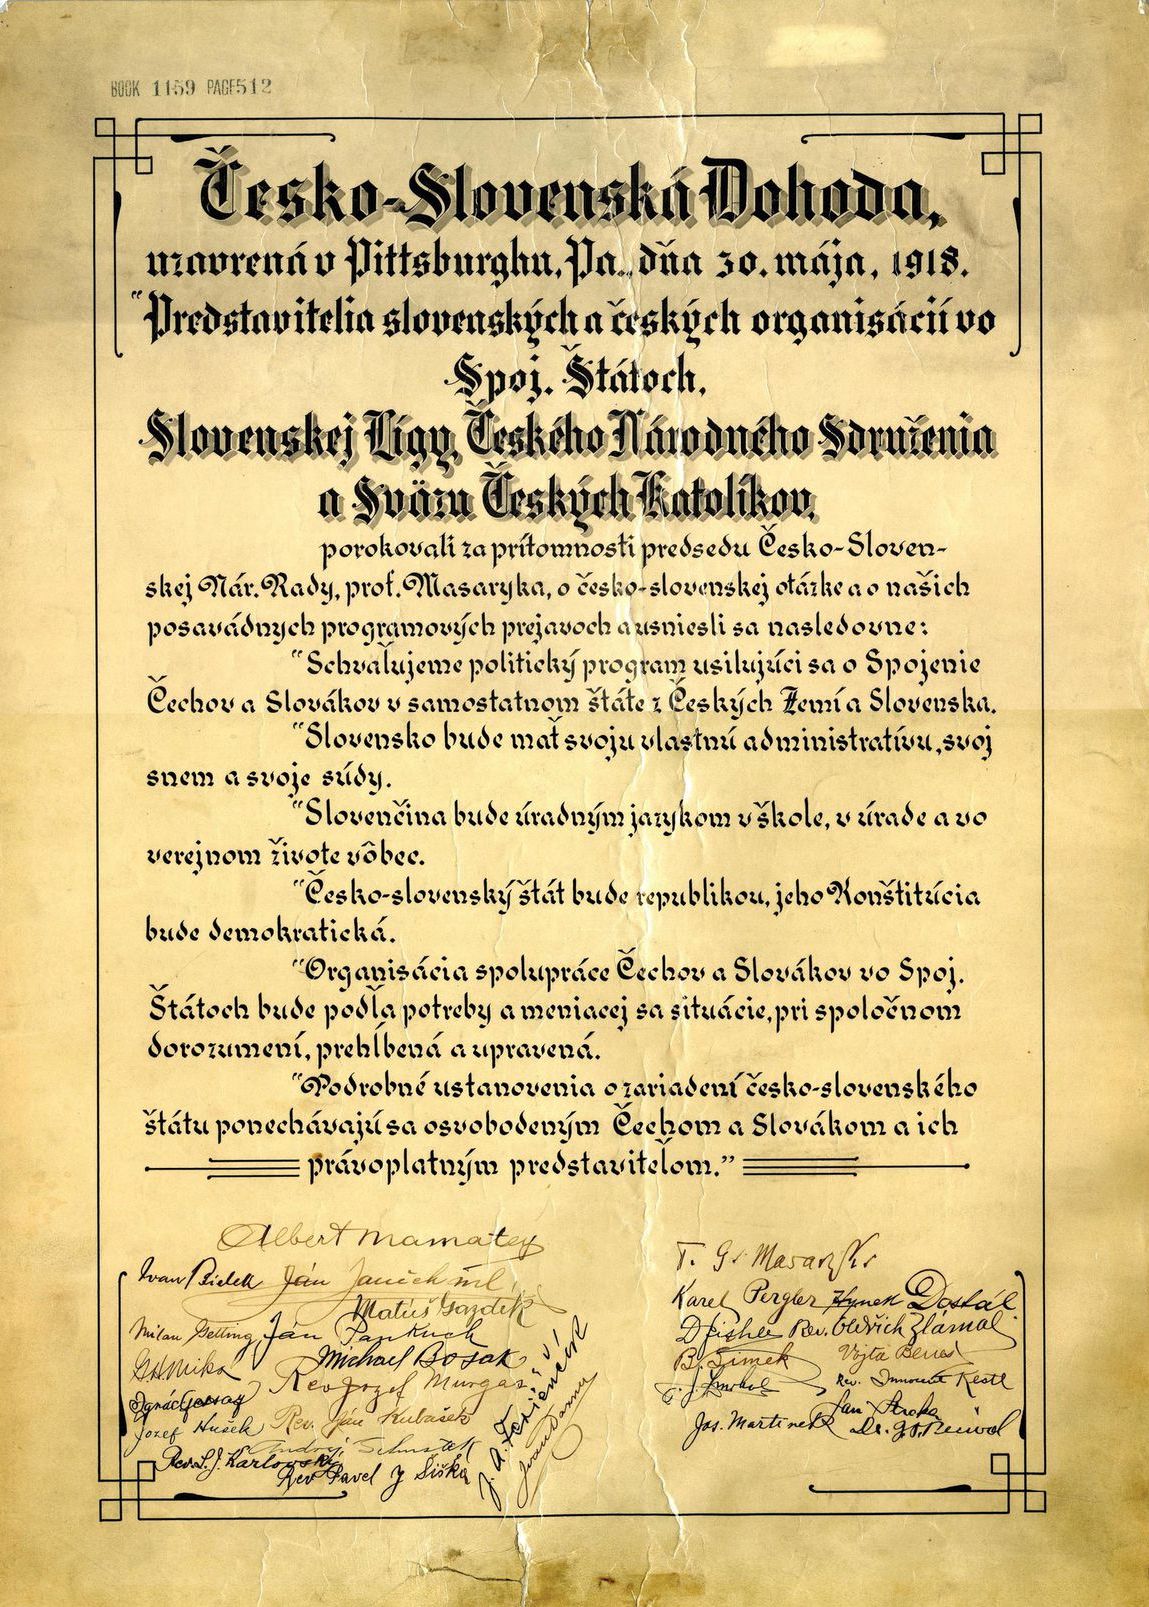 BOOK 1159 PAGE512
Česko-Slovenská Dohoda,
uzavrená v Pittsburghu, Pa., dňa 30. mája, 1918.
"Predstavitelia slovenských a českých organisácií vo
Spoj. Štátoch,
Slovenskej Lígy, Českého Národného Sdruženia
a Sväzu Českých Katolíkov,
porokovali za prítomnosti predsedu Česko-Sloven-
skej Nár. Rady, prof. Masaryka, o česko-slovenskej otázke a o našich
posavádnych programových prejavoch a usniesli sa nasledovne:
"Schvaľujeme politický program usilujúci sa o Spojenie
Čechov a Slovákov v samostatnom štáte z Českých Zemí a Slovenska.
"Slovensko bude mať svoju vlastnú administratívu, svoj
snem a svoje súdy.
"Slovenčina bude úradným jazykom v škole, v úrade a vo
verejnom živote vôbec.
"Česko-slovenský štát bude republikou, jeho Konštitúcia
bude demokratická.
"Organisácia spolupráce Čechov a Slovákov vo Spoj.
Štátoch bude podľa potreby a meniacej sa situácie, pri spoločnom
dorozumení, prehĺbená a upravená.
"Podrobné ustanovenia o zariadení česko-slovenského
štátu ponechávajú sa osvobodeným Čechom a Slovákom a ich
právoplatným predstaviteľom."
Albert Mamatey
Ivan Bielek Ján Janček ml.
Matúš Gazdík
Milan Getting Ján Pankuch
Michael Bosak
Rev Jozef Murgaš
Ignác Gessay
Jozef Hušek Rev. Ján Kubašek
Rev. L. J. Karlovský
Rev Pavel J Šiška
J. A. Ferienčík
Ivan Daxner
T. G. Masaryk
Karel Pergler Hynek Dostál
Rev. Oldřich Zlámal
B. Šimek Vojta Beneš
Rev. Innocent Kestl
Jos. Martinek